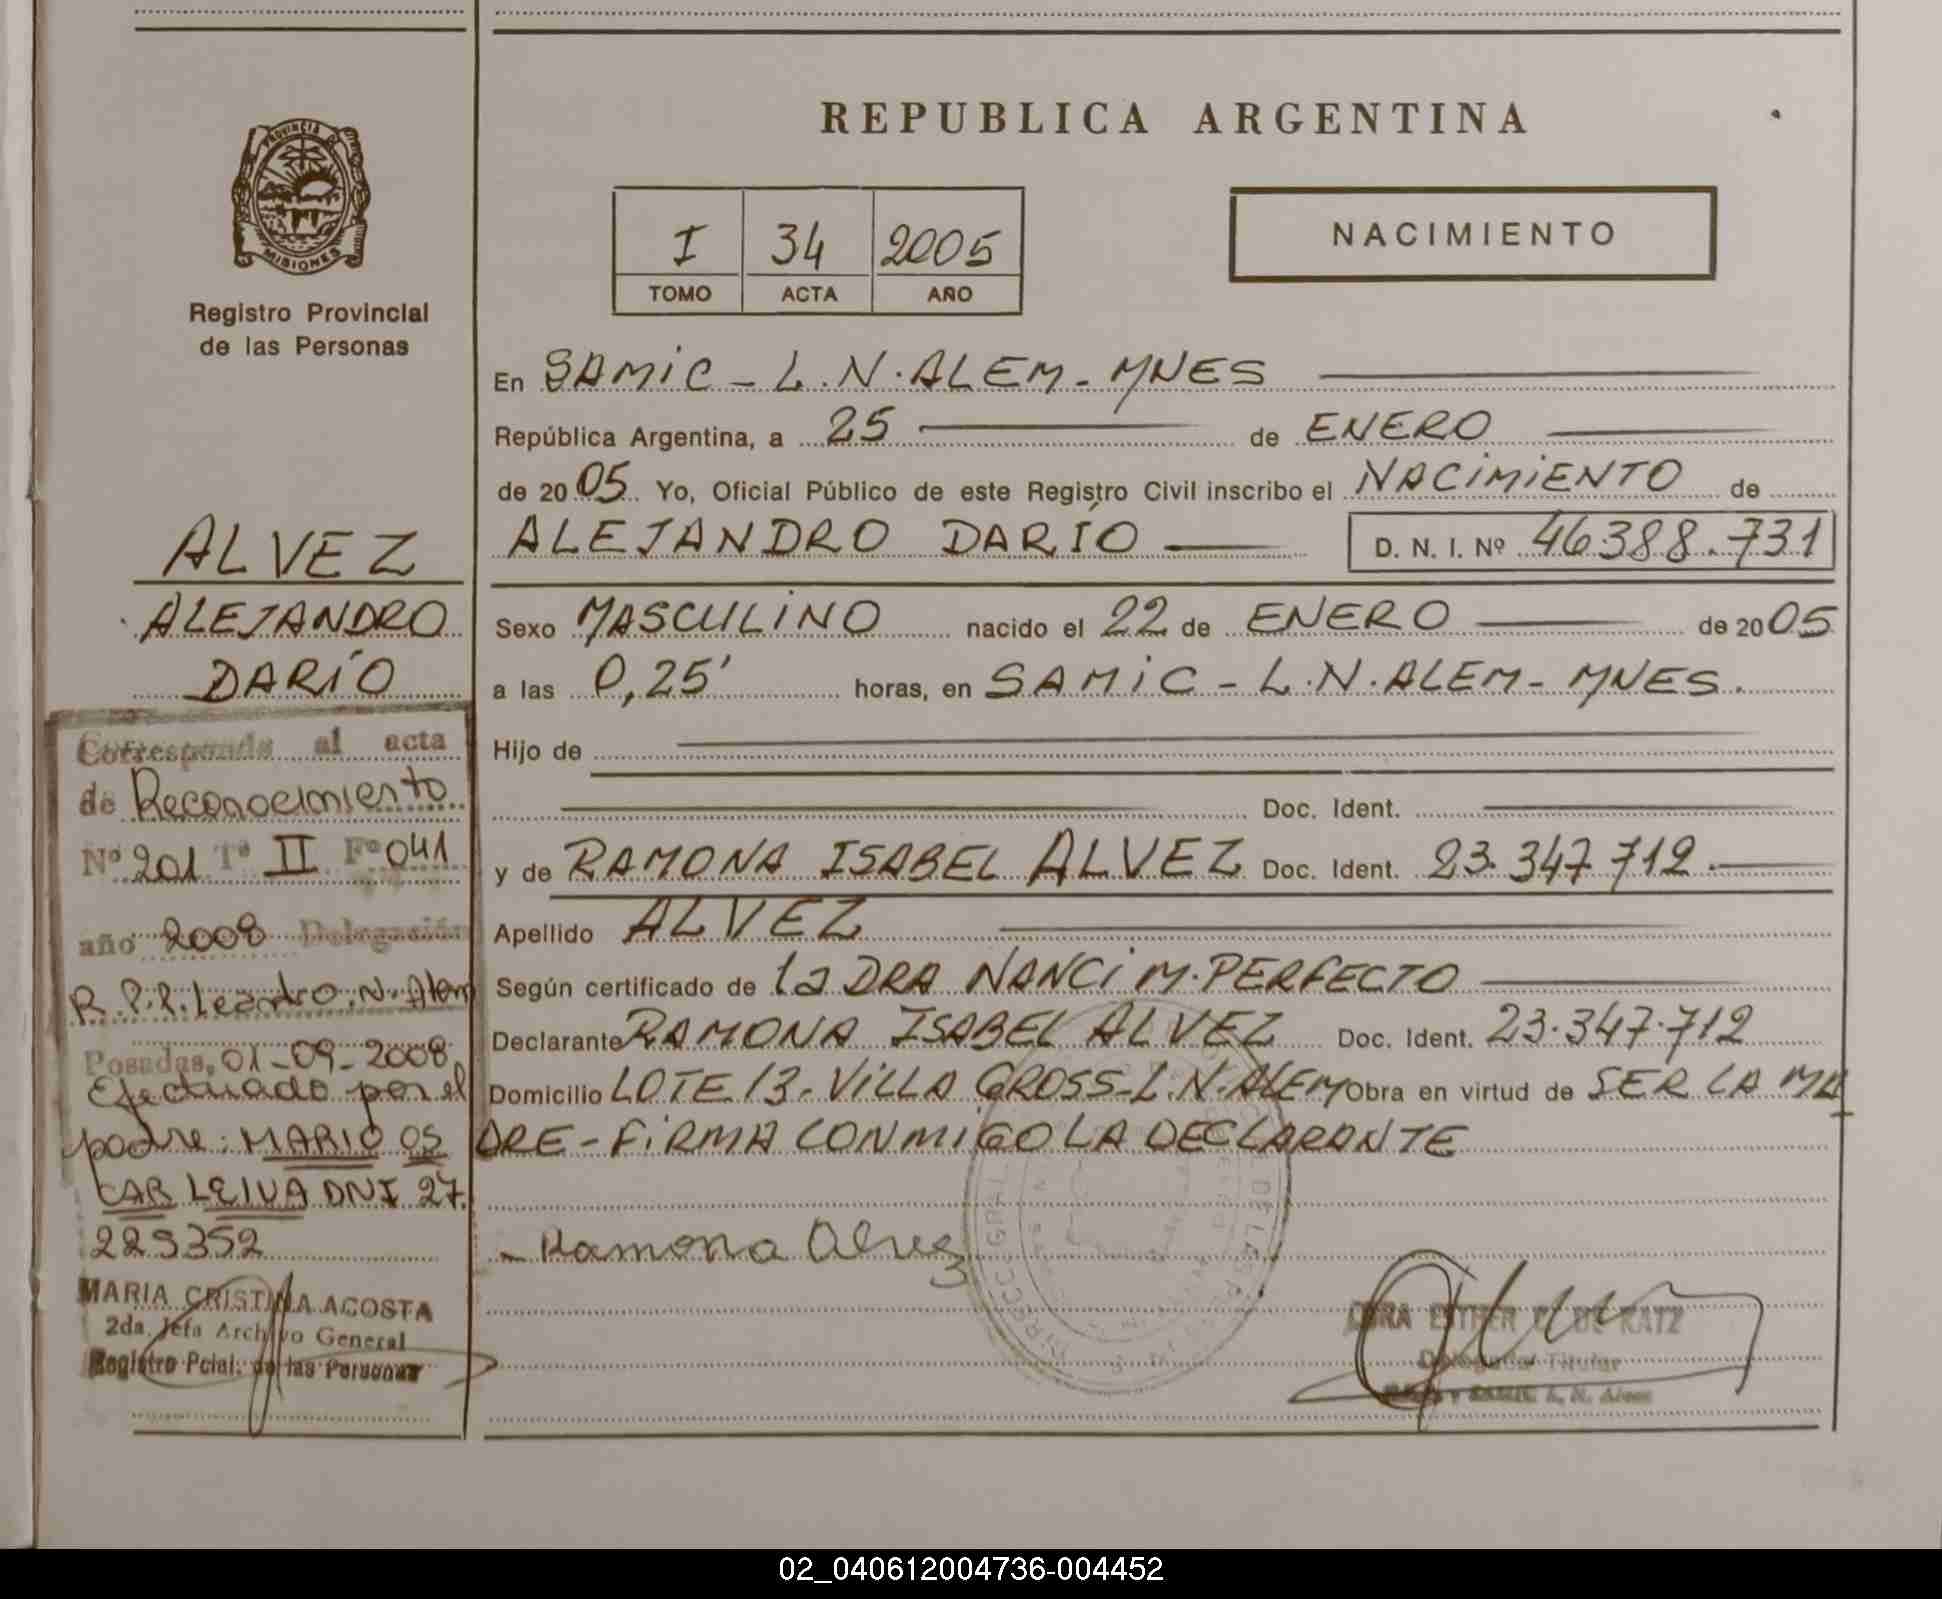 PROVINCIA DE
MISIONES
Registro Provincial
de las Personas
ALVEZ
ALEJANDRO
DARÍO
Corresponde al acta
de Reconocimiento
Nº 201 Tº II Fº 041
año 2008 Delegación
R.P.P. Leandro.N.Alem
Posadas, 01-09-2008
Efectuado por el
padre: MARIO OS
CAR LEIVA DNI 27.
225352
MARIA CRISTINA ACOSTA
2da. Jefa Archivo General
Registro Pcial. de las Personas
REPUBLICA ARGENTINA
I 34 2005
TOMO ACTA AÑO
NACIMIENTO
En SAMIC - L.N.ALEM - MNES
República Argentina, a 25 de ENERO
de 2005 Yo, Oficial Público de este Registro Civil inscribo el NACIMIENTO de
ALEJANDRO DARÍO D. N. I. Nº 46388.731
Sexo MASCULINO nacido el 22 de ENERO de 2005
a las 0,25' horas, en SAMIC - L.N.ALEM - MNES.
Hijo de
Doc. Ident.
y de RAMONA ISABEL ALVEZ Doc. Ident. 23.347.712.
Apellido ALVEZ
Según certificado de la DRA NANCI M. PERFECTO
Declarante RAMONA ISABEL ALVEZ Doc. Ident. 23.347.712
Domicilio LOTE 13 - VILLA GROSS - L.N.ALEM Obra en virtud de SER LA MA
DRE - FIRMA CONMIGO LA DECLARANTE
- Ramona Alvez
ESTHER DE KATZ
Delegada Titular
L. N. Alem
02_040612004736-004452